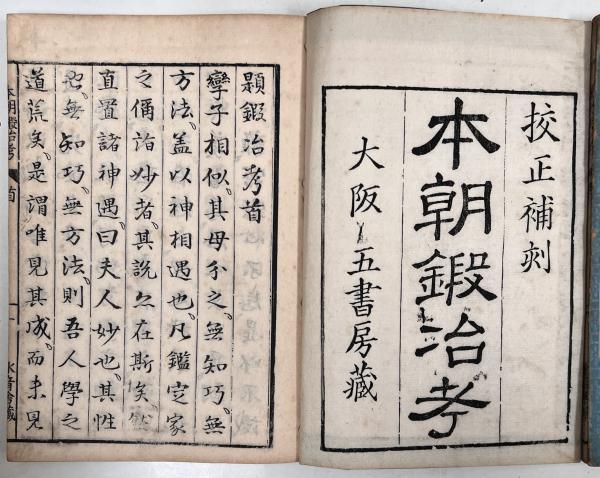 校正補刻
本朝鍛冶考
大阪 五書房藏
題鍛冶考首
孿子相似其母分之無知巧無
方法蓋以神相遇也凡鑑定家
之偁詣妙者其說亦在斯矣然
直置諸神遇曰夫人妙也其性
也無知巧無方法則吾人學之
道荒矣是謂唯見其成而未見
本朝鍛冶考 首